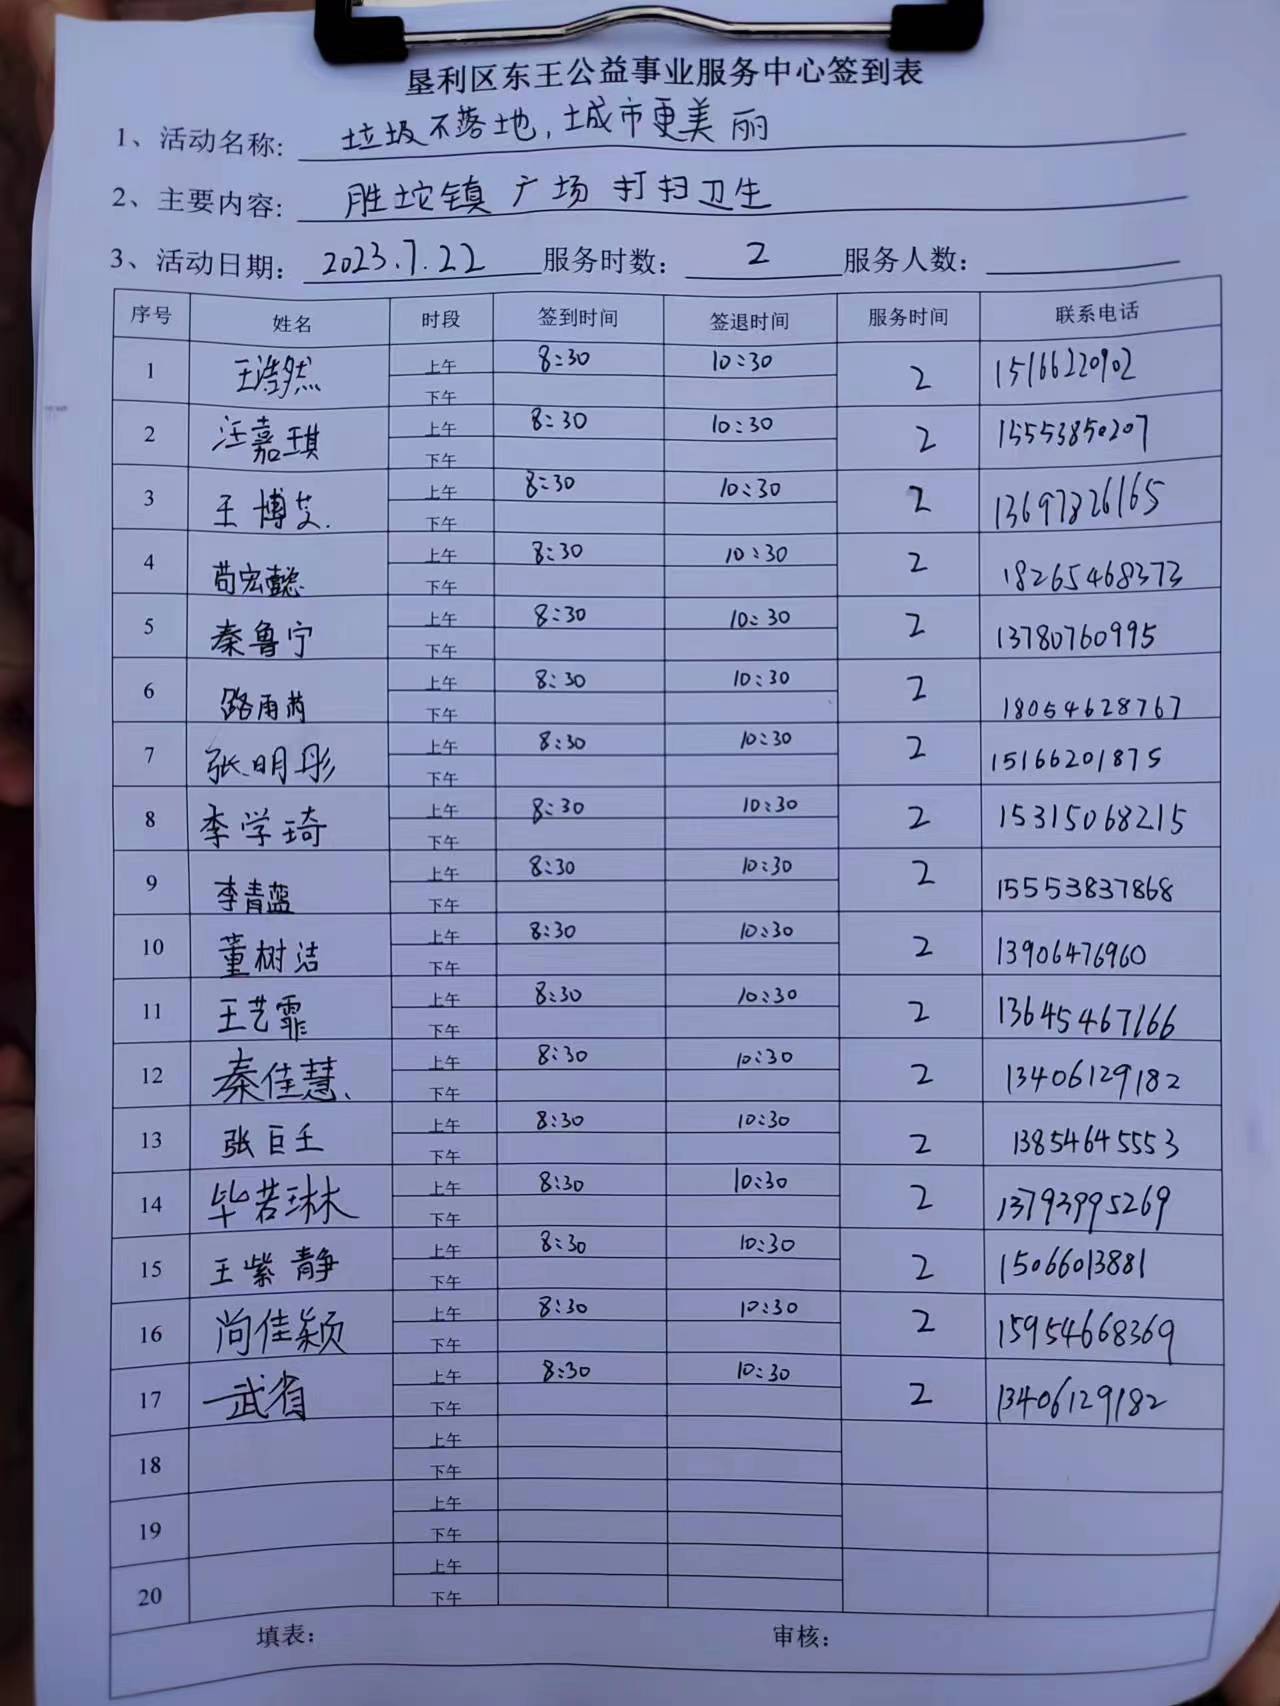 垦利区东王公益事业服务中心签到表
1、活动名称: 垃圾不落地,城市更美丽
2、主要内容: 胜坨镇 广场 打扫卫生
3、活动日期: 2023.7.22 服务时数: 2 服务人数:
序号 姓名 时段 签到时间 签退时间 服务时间 联系电话
1 王浩然 上午 8:30 10:30 2 15166220902
下午
2 汪嘉琪 上午 8:30 10:30 2 15553850207
下午
3 王博艾. 上午 8:30 10:30 2 13697826165
下午
4 苟宏懿 上午 8:30 10:30 2 18265468373
下午
5 秦鲁宁 上午 8:30 10:30 2 13780760995
下午
6 路雨芮 上午 8:30 10:30 2 18054628767
下午
7 张明彤 上午 8:30 10:30 2 15166201875
下午
8 李学琦 上午 8:30 10:30 2 15315068215
下午
9 李青蓝 上午 8:30 10:30 2 15553837868
下午
10 董树洁 上午 8:30 10:30 2 13906476960
下午
11 王艺霏 上午 8:30 10:30 2 13645467166
下午
12 秦佳慧、 上午 8:30 10:30 2 13406129182
下午
13 张巨壬 上午 8:30 10:30 2 13854645553
下午
14 毕若琳 上午 8:30 10:30 2 13793995269
下午
15 王紫静 上午 8:30 10:30 2 15066013881
下午
16 尚佳颖 上午 8:30 10:30 2 15954668369
下午
17 武省 上午 8:30 10:30 2 13406129182
下午
18 上午
下午
19 上午
下午
20 上午
下午
填表: 审核: